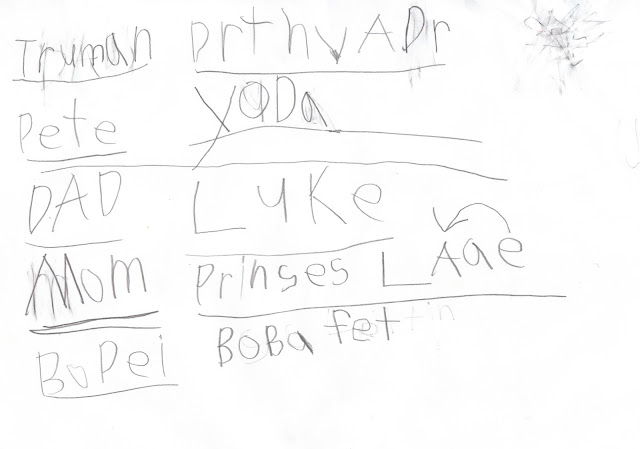 Truman Drth vADr
Pete YODa
DAD Luke
Mom Prinses LAae
BoPei BOBa fet